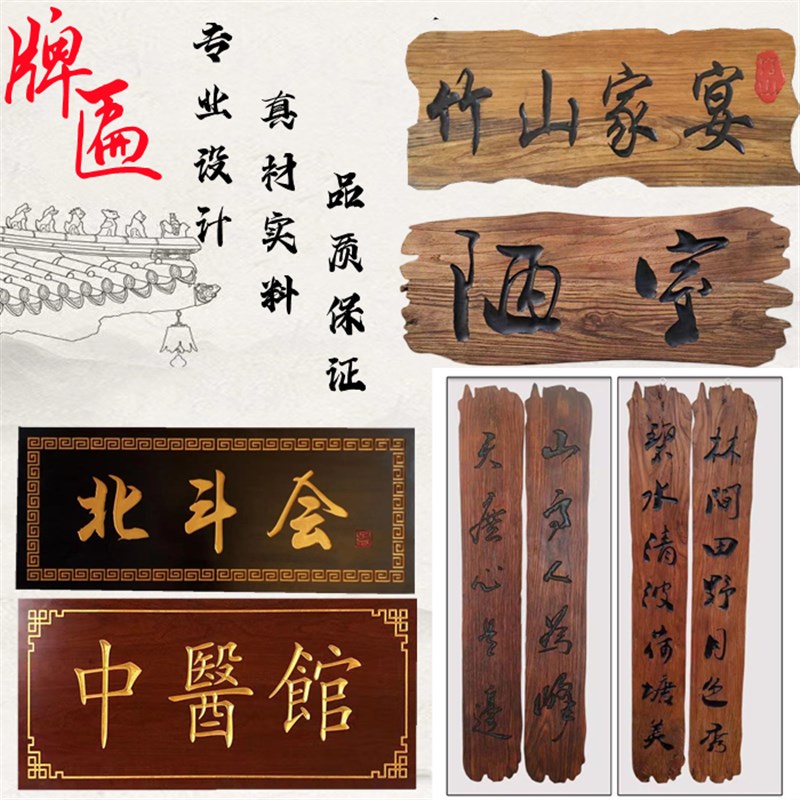 牌匾
专业设计
真材实料
品质保证
竹山家宴
陋室
北斗会
中醫館
山高人為峰
天 心 邊
林間田野月色秀
碧水清波荷塘美